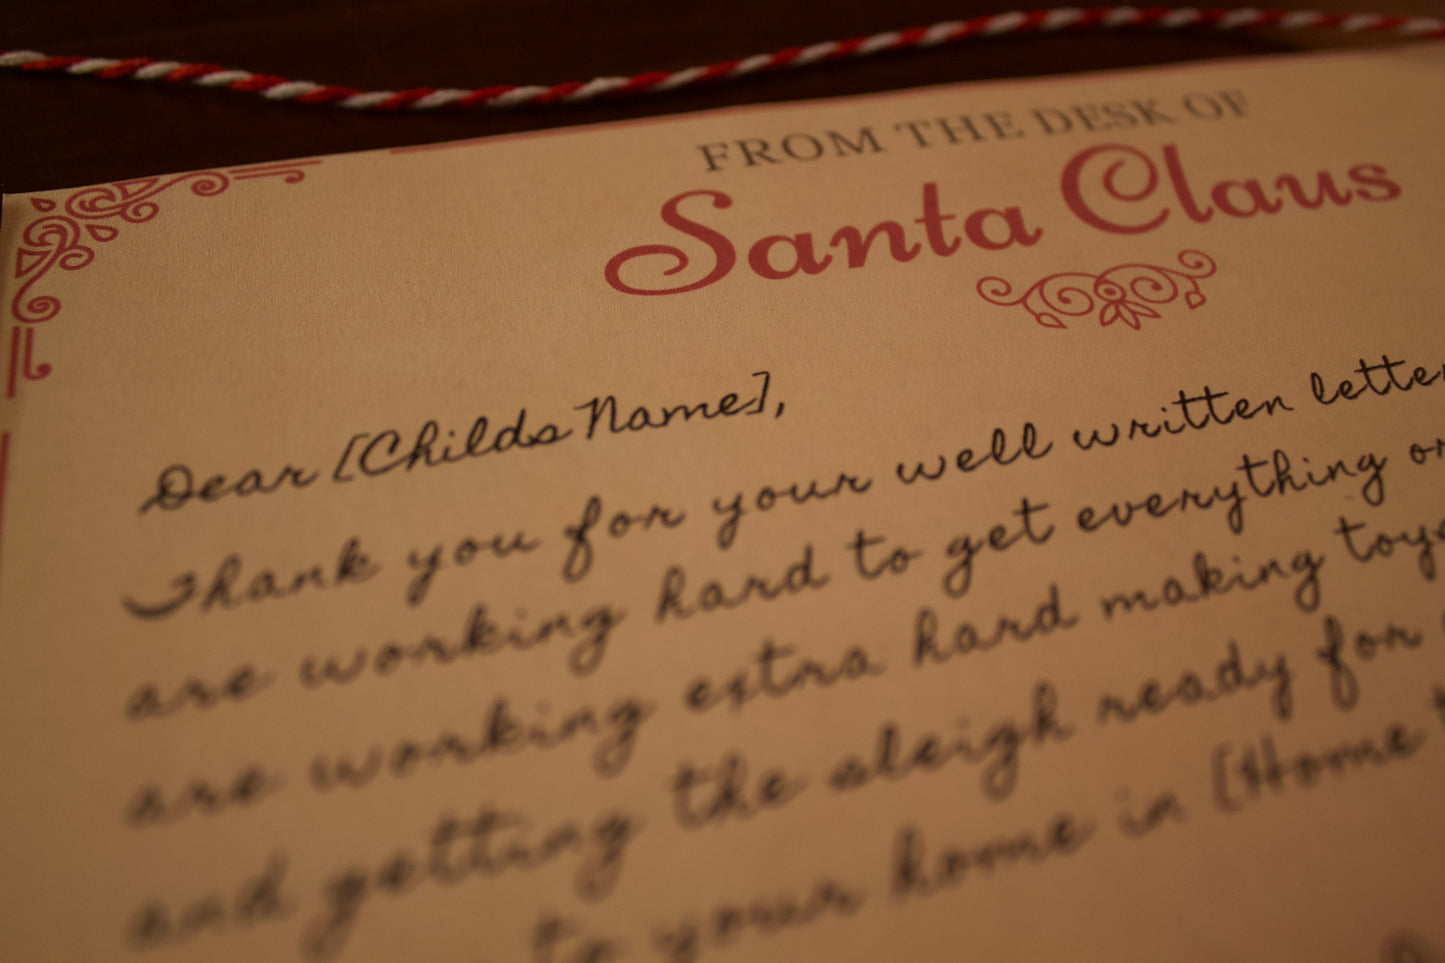 FROM THE DESK OF
Santa Claus
Dear [Childs Name],
Thank you for your well written letter
are working hard to get everything
are working extra hard making toys
and getting the sleigh ready for
to your home in [Home